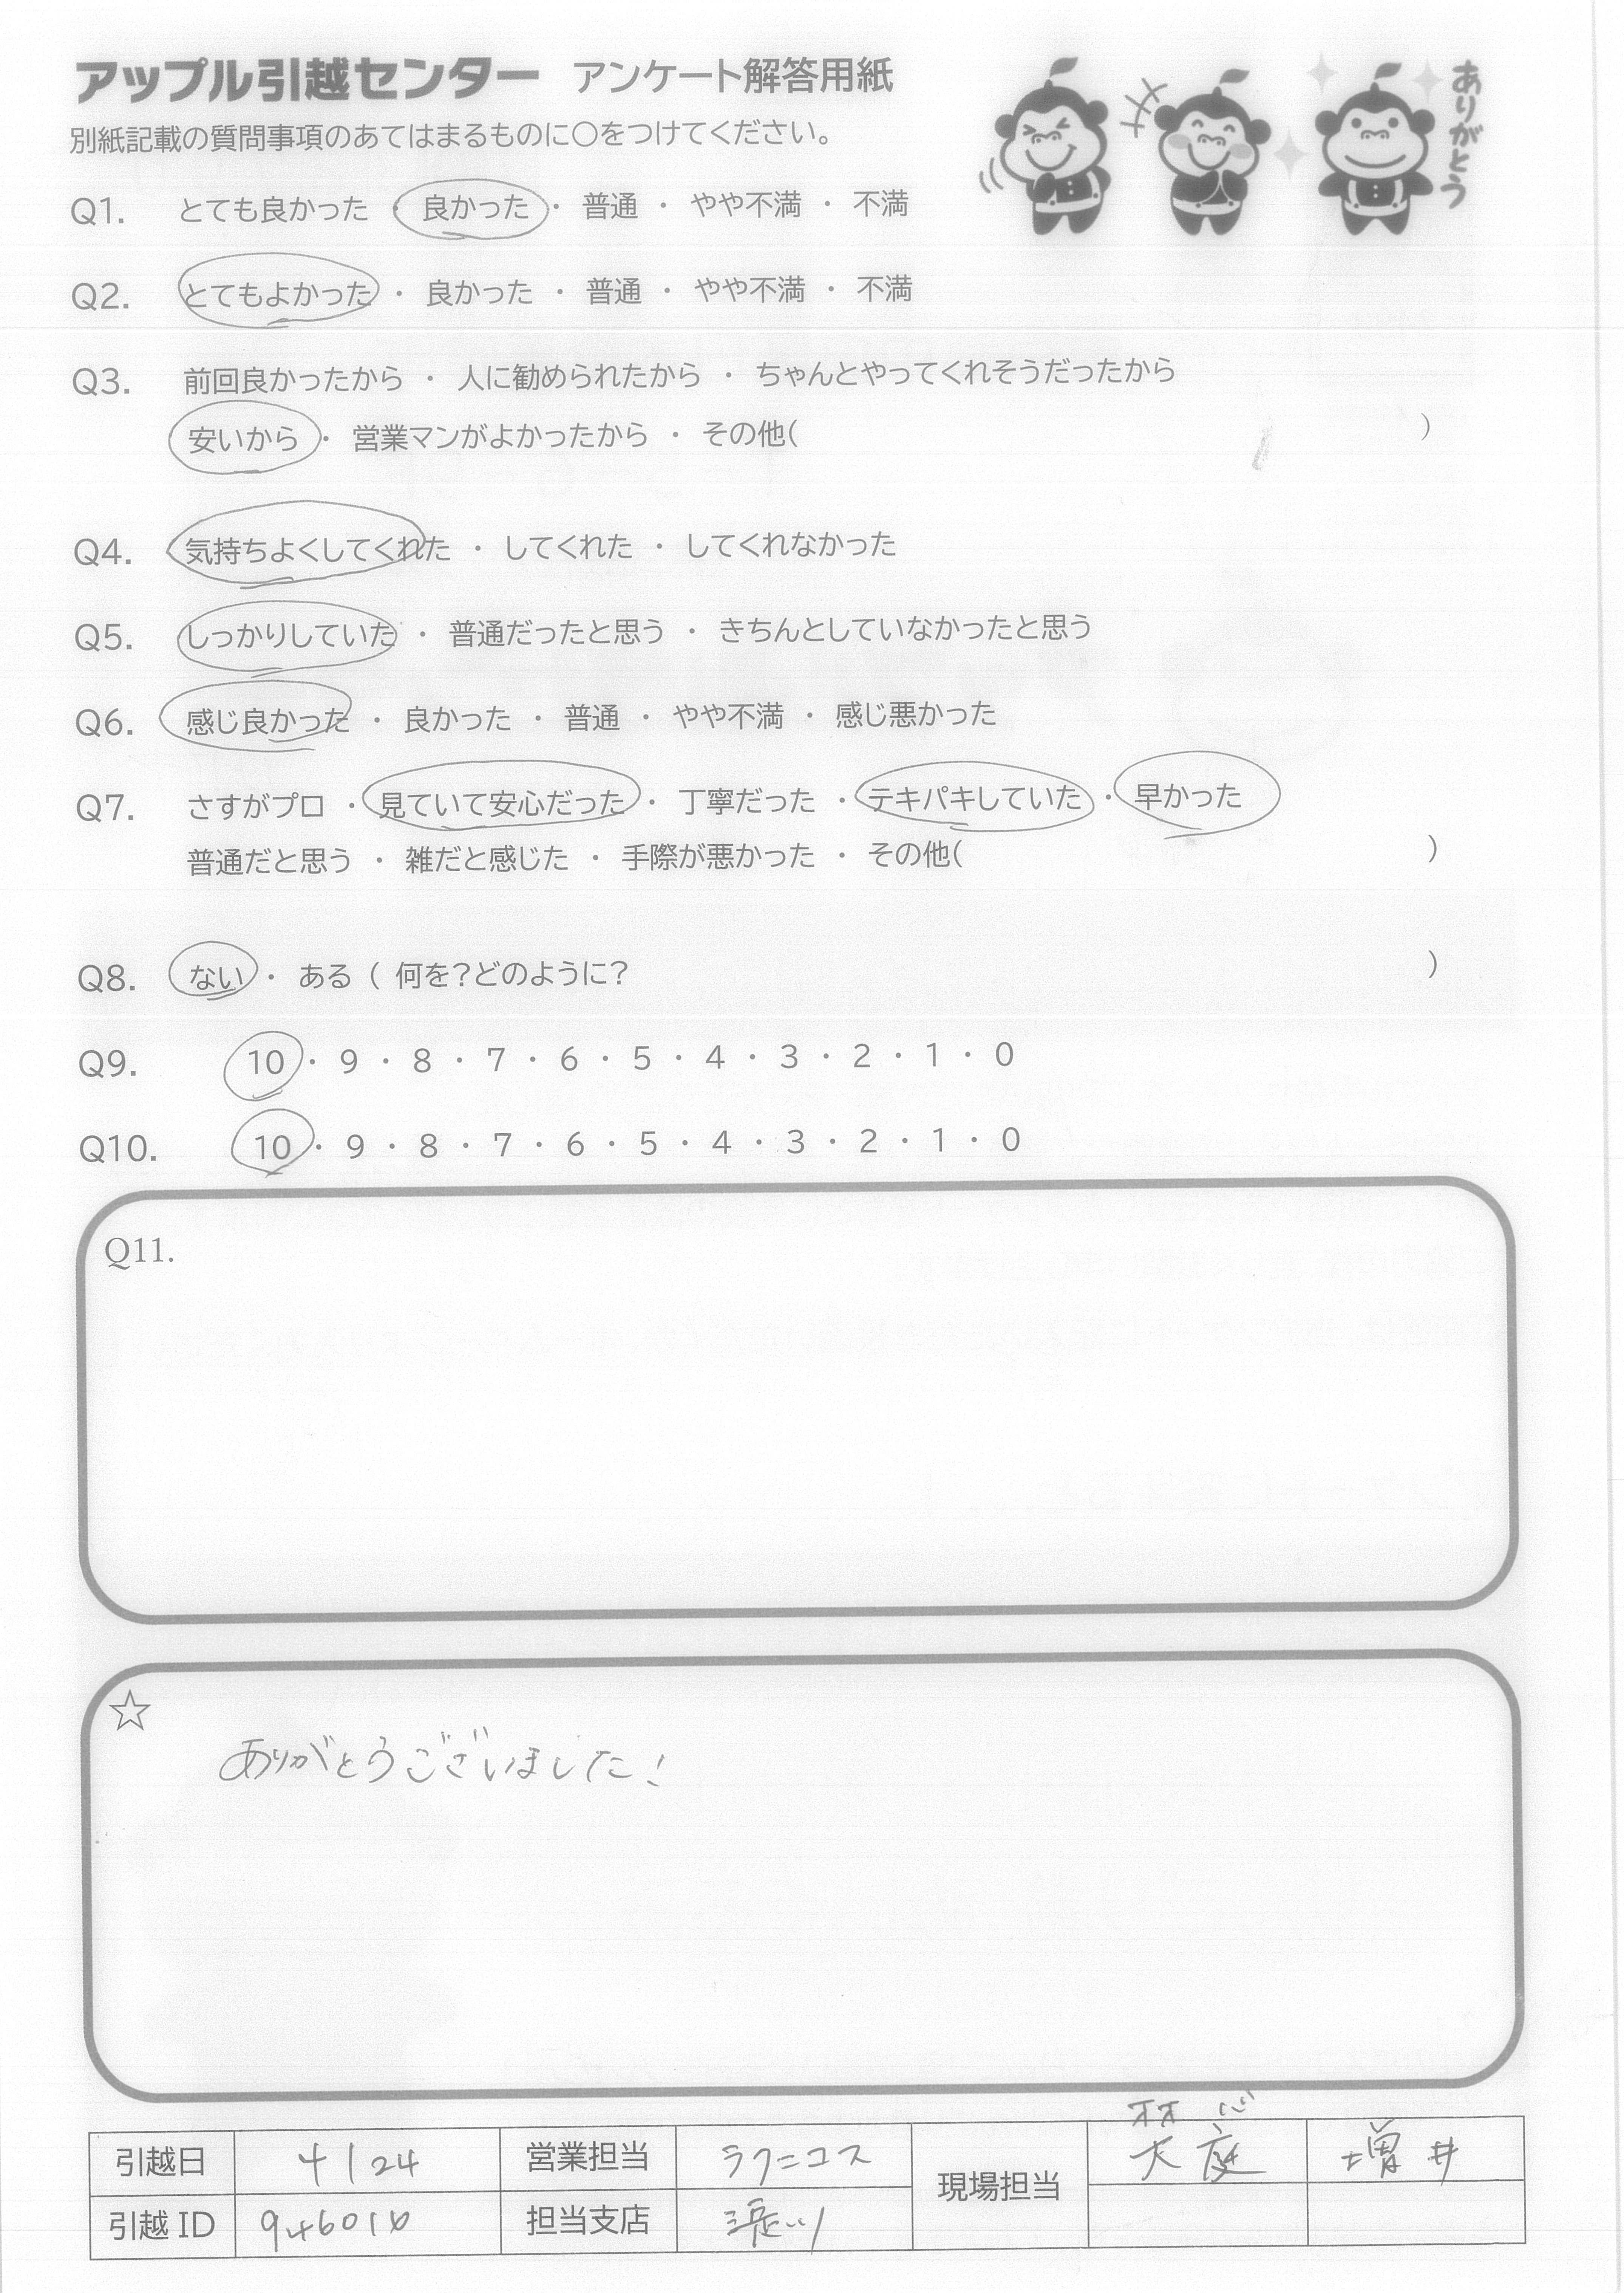 アップル引越センター アンケート解答用紙
ありがとう
別紙記載の質問事項のあてはまるものに○をつけてください。
Q1. とても良かった ・ 良かった ・ 普通 ・ やや不満 ・ 不満
Q2. とてもよかった ・ 良かった ・ 普通 ・ やや不満 ・ 不満
Q3. 前回良かったから ・ 人に勧められたから ・ ちゃんとやってくれそうだったから
安いから ・ 営業マンがよかったから ・ その他( )
Q4. 気持ちよくしてくれた ・ してくれた ・ してくれなかった
Q5. しっかりしていた ・ 普通だったと思う ・ きちんとしていなかったと思う
Q6. 感じ良かった ・ 良かった ・ 普通 ・ やや不満 ・ 感じ悪かった
Q7. さすがプロ ・ 見ていて安心だった ・ 丁寧だった ・ テキパキしていた ・ 早かった
普通だと思う ・ 雑だと感じた ・ 手際が悪かった ・ その他( )
Q8. ない ・ ある ( 何を?どのように? )
Q9. 10 ・ 9 ・ 8 ・ 7 ・ 6 ・ 5 ・ 4 ・ 3 ・ 2 ・ 1 ・ 0
Q10. 10 ・ 9 ・ 8 ・ 7 ・ 6 ・ 5 ・ 4 ・ 3 ・ 2 ・ 1 ・ 0
Q11.
☆
ありがとうございました!
引越日 4/24 営業担当 ラクニコス 現場担当 大庭 増井
引越 ID 担当支店